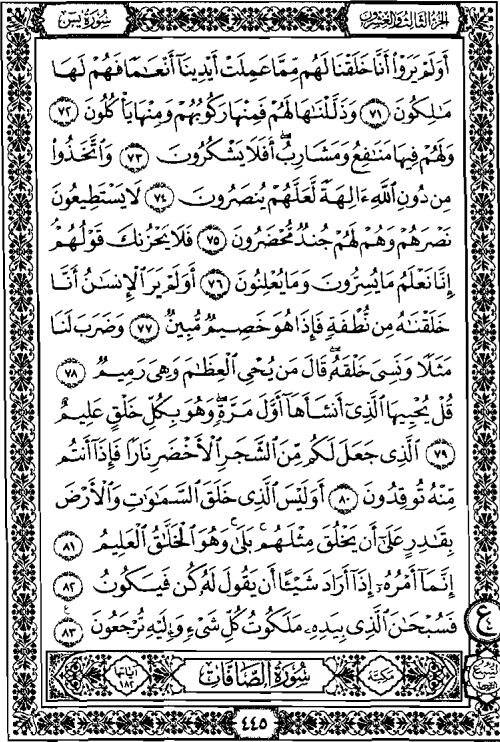 الجزء الثالث والعشرون
سورة يس
أَوَلَمْ يَرَوْا۟ أَنَّا خَلَقْنَا لَهُم مِّمَّا عَمِلَتْ أَيْدِينَآ أَنْعَـٰمًا فَهُمْ لَهَا
مَـٰلِكُونَ ٧١ وَذَلَّلْنَـٰهَا لَهُمْ فَمِنْهَا رَكُوبُهُمْ وَمِنْهَا يَأْكُلُونَ ٧٢
وَلَهُمْ فِيهَا مَنَـٰفِعُ وَمَشَارِبُ ۖ أَفَلَا يَشْكُرُونَ ٧٣ وَٱتَّخَذُوا۟
مِن دُونِ ٱللَّهِ ءَالِهَةً لَّعَلَّهُمْ يُنصَرُونَ ٧٤ لَا يَسْتَطِيعُونَ
نَصْرَهُمْ وَهُمْ لَهُمْ جُندٌ مُّحْضَرُونَ ٧٥ فَلَا يَحْزُنكَ قَوْلُهُمْ ۘ
إِنَّا نَعْلَمُ مَا يُسِرُّونَ وَمَا يُعْلِنُونَ ٧٦ أَوَلَمْ يَرَ ٱلْإِنسَـٰنُ أَنَّا
خَلَقْنَـٰهُ مِن نُّطْفَةٍ فَإِذَا هُوَ خَصِيمٌ مُّبِينٌ ٧٧ وَضَرَبَ لَنَا
مَثَلًا وَنَسِىَ خَلْقَهُۥ ۖ قَالَ مَن يُحْىِ ٱلْعِظَـٰمَ وَهِىَ رَمِيمٌ ٧٨
قُلْ يُحْيِيهَا ٱلَّذِىٓ أَنشَأَهَآ أَوَّلَ مَرَّةٍ ۖ وَهُوَ بِكُلِّ خَلْقٍ عَلِيمٌ
٧٩ ٱلَّذِى جَعَلَ لَكُم مِّنَ ٱلشَّجَرِ ٱلْأَخْضَرِ نَارًا فَإِذَآ أَنتُم
مِّنْهُ تُوقِدُونَ ٨٠ أَوَلَيْسَ ٱلَّذِى خَلَقَ ٱلسَّمَـٰوَٰتِ وَٱلْأَرْضَ
بِقَـٰدِرٍ عَلَىٰٓ أَن يَخْلُقَ مِثْلَهُم ۚ بَلَىٰ وَهُوَ ٱلْخَلَّـٰقُ ٱلْعَلِيمُ ٨١
إِنَّمَآ أَمْرُهُۥٓ إِذَآ أَرَادَ شَيْـًٔا أَن يَقُولَ لَهُۥ كُن فَيَكُونُ ٨٢
فَسُبْحَـٰنَ ٱلَّذِى بِيَدِهِۦ مَلَكُوتُ كُلِّ شَىْءٍ وَإِلَيْهِ تُرْجَعُونَ ٨٣
ع
٤
مكية
سورة الصافات
آياتها
١٨٢
٤٤٥